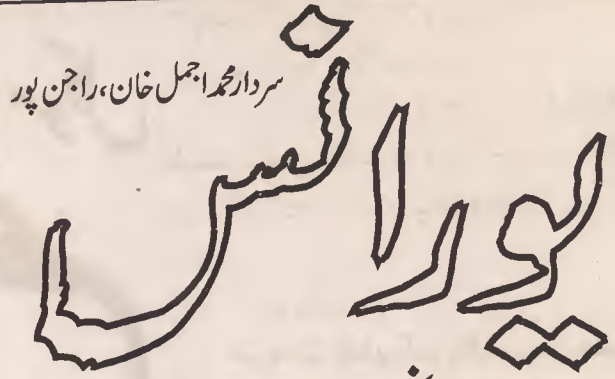 سردار محمد اجمل خان، راجن پور
یورانس